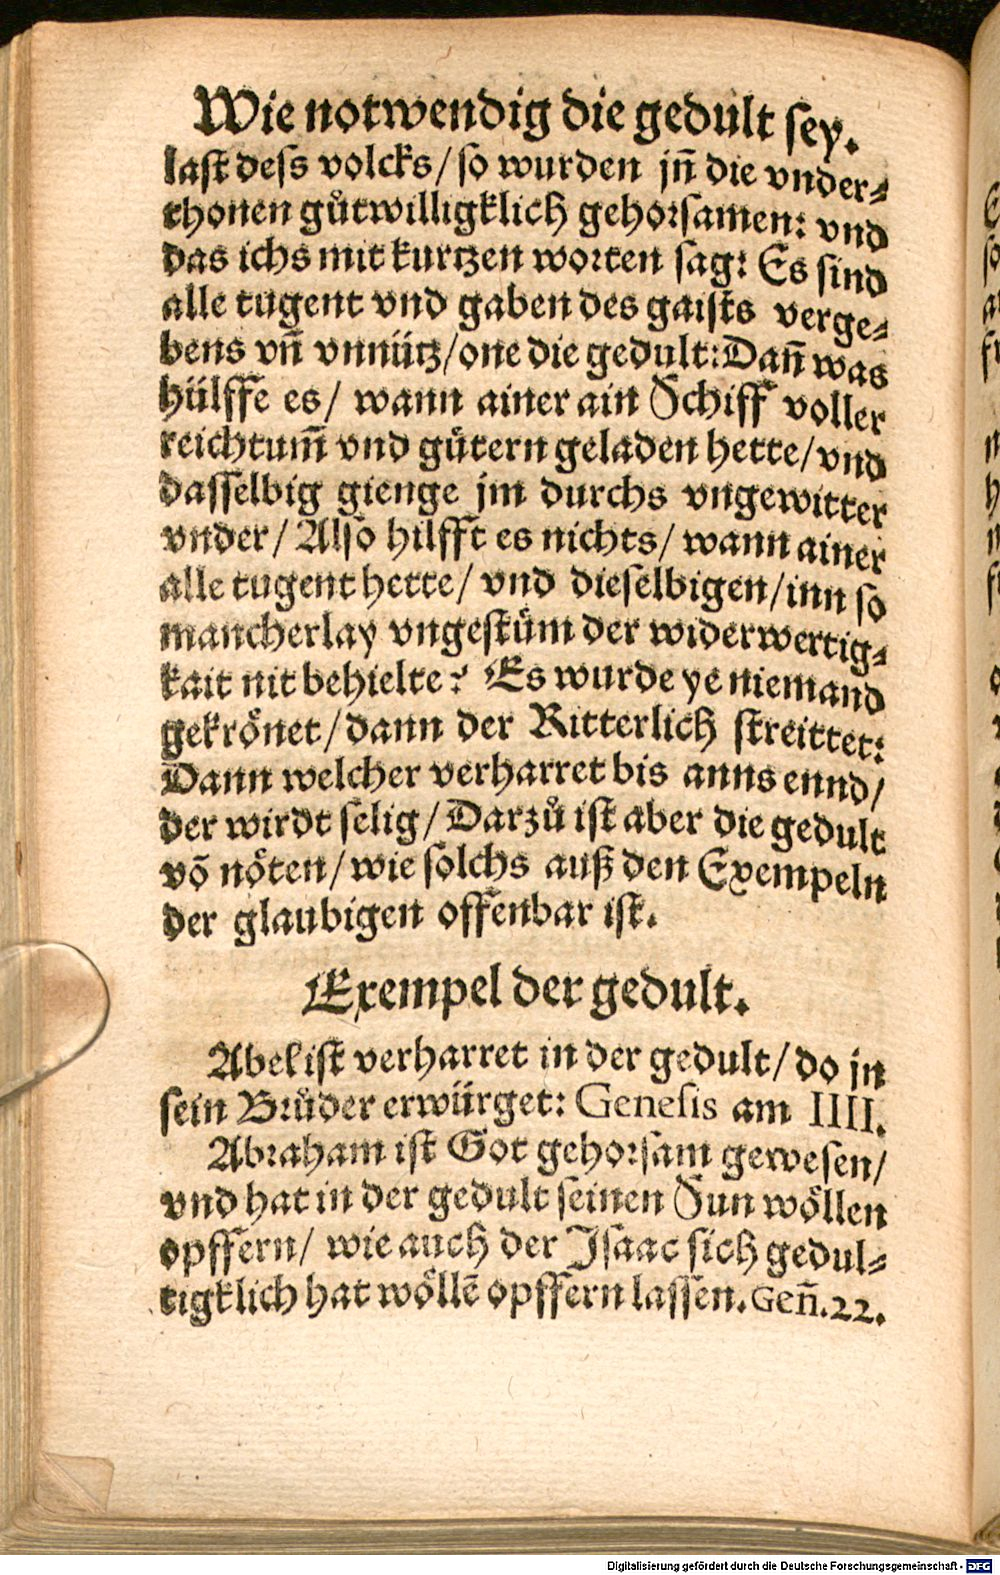 Wie notwendig die gedult sey.
last dess volcks/ so wurden jn̄ die vnder⸗
thonen gůtwilligklich gehorsamen: vnd
das ichs mit kurtzen worten sag: Es sind
alle tugent vnd gaben des gaists verge⸗
bens vn̄ vnnütz/ one die gedult: Dan̄ was
hülffe es/ wann ainer ain Schiff voller
reichtum̄ vnd gütern geladen hette/ vnd
dasselbig gienge jm durchs vngewitter
vnder/ Also hilfft es nichts/ wann ainer
alle tugent hette/ vnd dieselbigen/ inn so
mancherlay vngestüm der widerwertig⸗
kait nit behielte? Es wurde ye niemand
gekrönet/ dann der Ritterlich streittet:
Dann welcher verharret bis anns ennd/
der wirdt selig/ Darzů ist aber die gedult
vō nöten/ wie solchs auß den Exempeln
der glaubigen offenbar ist.
Exempel der gedult.
Abel ist verharret in der gedult/ do jn
sein Brůder erwürget: Genesis am IIII.
Abraham ist Got gehorsam gewesen/
vnd hat in der gedult seinen Sun wöllen
opffern/ wie auch der Isaac sich gedul⸗
tigklich hat wöllē opffern lassen. Gen̄. 22.
Digitalisierung gefördert durch die Deutsche Forschungsgemeinschaft - DFG